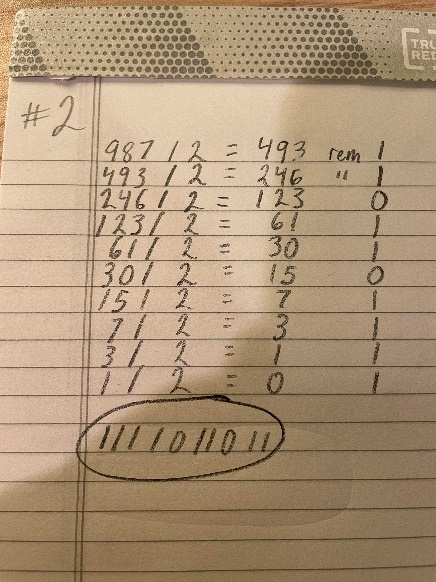 TRU
RED
#2
987 / 2 = 493 rem 1
493 / 2 = 246 " 1
246 / 2 = 123 0
123 / 2 = 61 1
61 / 2 = 30 1
30 / 2 = 15 0
15 / 2 = 7 1
7 / 2 = 3 1
3 / 2 = 1 1
1 / 2 = 0 1
1111011011